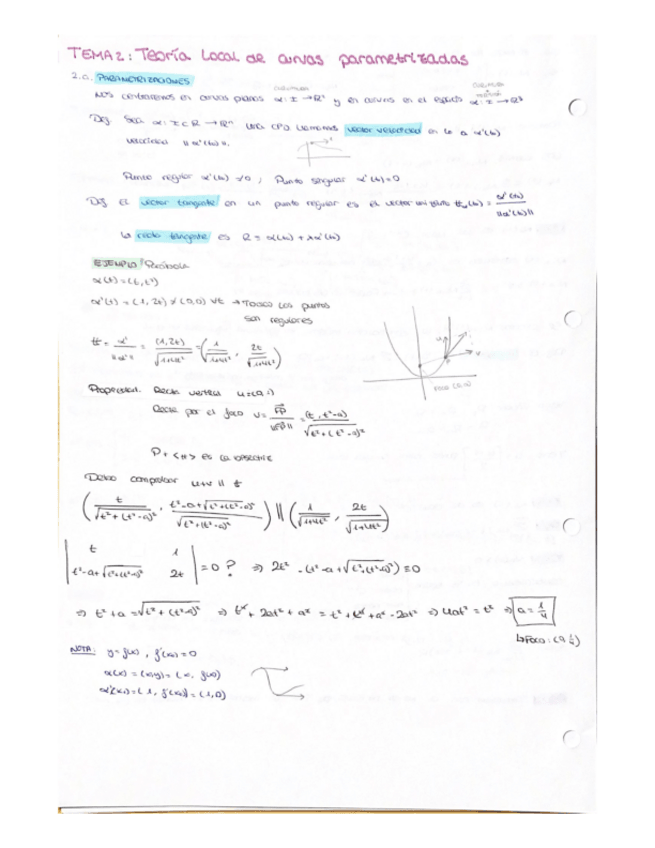 TEMA 2: Teoría Local de curvas parametrizadas
2.0. PARAMETRIZACIONES
Nos centraremos en curvas planas α: I → R² y en curvas en el espacio α: I → R³
Def Sea α: I ⊂ R → Rⁿ una CPD llamamos vector velocidad en t₀ a α'(t₀)
velocidad ||α'(t₀)||.
Punto regular α'(t₀) ≠ 0 ; Punto singular α'(t₀) = 0
Def El vector tangente en un punto regular es el vector unitario t(t₀) = α'(t₀) / ||α'(t₀)||
La recta tangente es R = α(t₀) + λα'(t₀)
EJEMPLO Parábola
α(t) = (t, t²)
α'(t) = (1, 2t) ≠ (0,0) ∀t → Todos los puntos
son regulares
t = α' / ||α'|| = (1, 2t) / √(1+4t²) = (1/√(1+4t²), 2t/√(1+4t²))
u
v
P
Foco (0,a)
Propiedad. Recta vertical u = (0,1)
Recta por el foco v = FP / ||FP|| = (t, t²-a) / √(t²+(t²-a)²)
P + <t> es la bisectriz
Debo comprobar u+v || t
(t/√(t²+(t²-a)²), (t²-a+√(t²+(t²-a)²))/√(t²+(t²-a)²)) || (1/√(1+4t²), 2t/√(1+4t²))
| t 1 |
| t²-a+√(t²+(t²-a)²) 2t | = 0 ? ⇒ 2t² - (t²-a+√(t²+(t²-a)²)) = 0
⇒ t²+a = √(t²+(t²-a)²) ⇒ t⁴ + 2at² + a² = t² + t⁴ + a² - 2at² ⇒ 4at² = t² ⇒ a = 1/4
↳ Foco: (0, 1/4)
NOTA: y = f(x) , f'(x₀) = 0
α(x) = (x,y) = (x, f(x))
α'(x₀) = (1, f'(x₀)) = (1,0)